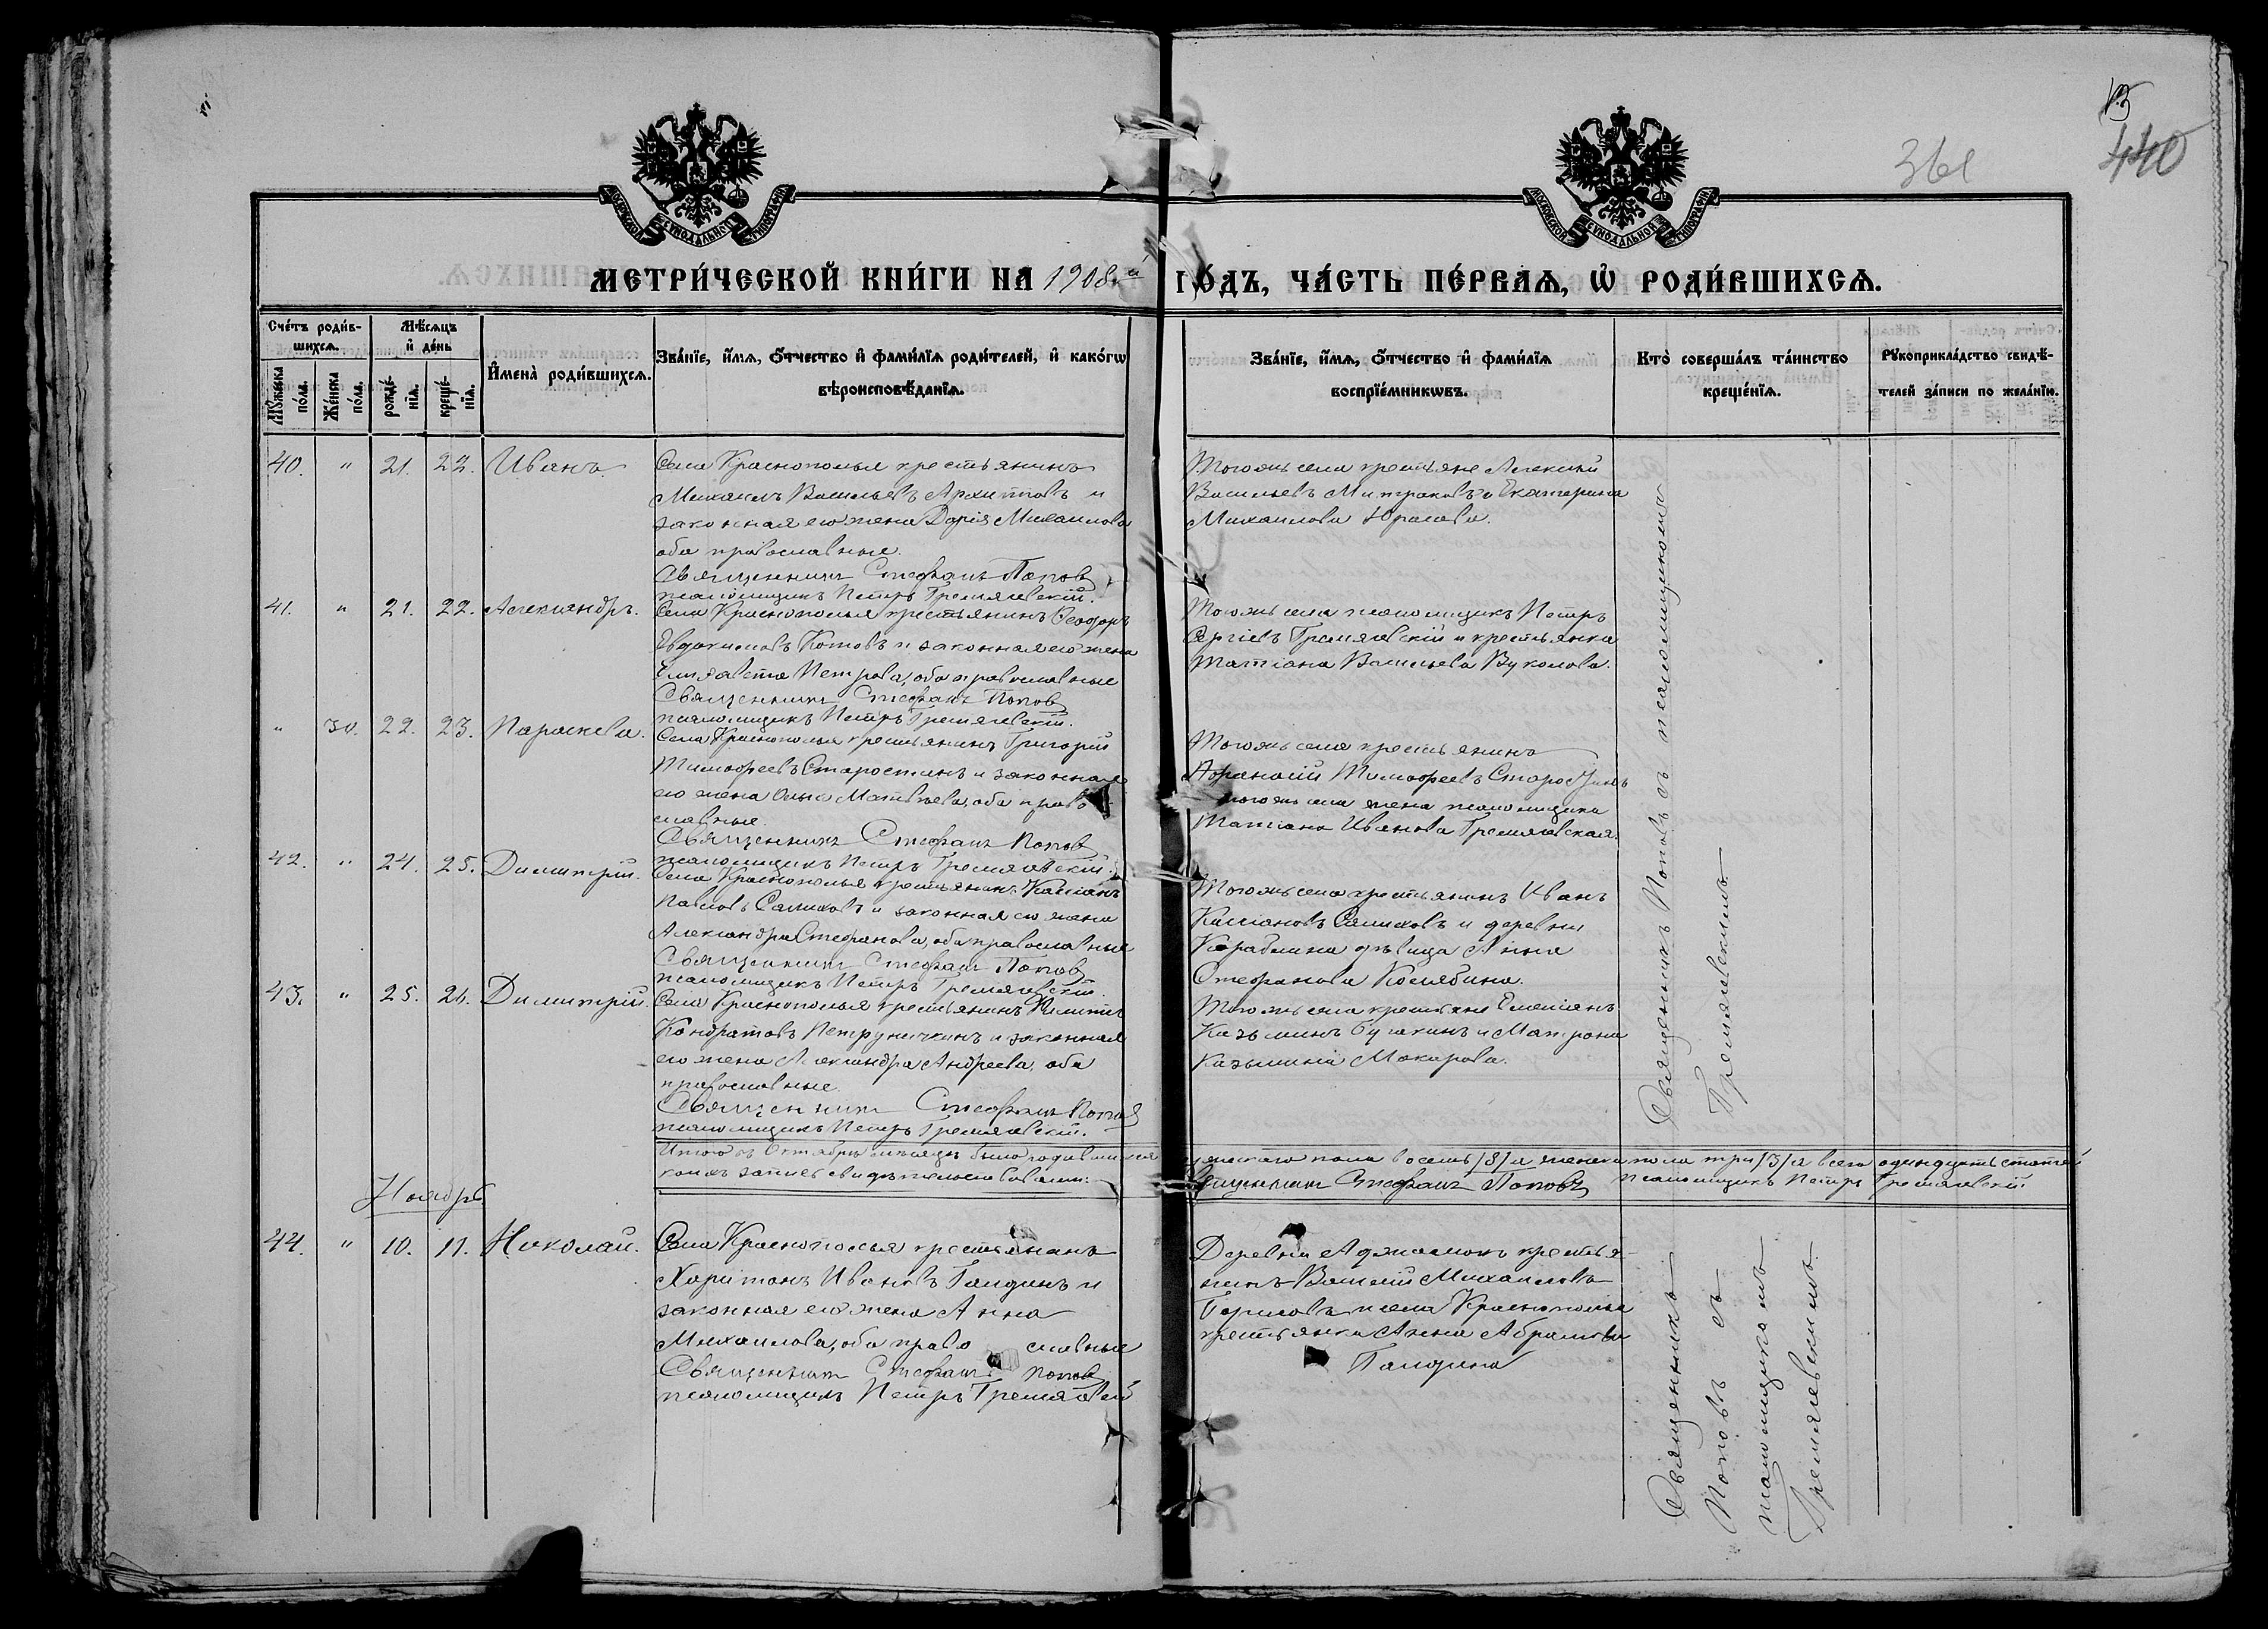 13
361
440
МОСКОВСКОЙ СѴНОДАЛЬНОЙ ТИПОГРАФІИ
МОСКОВСКОЙ СѴНОДАЛЬНОЙ ТИПОГРАФІИ
МЕТРИ́ЧЕСКОЙ КНИ́ГИ НА 1908й ГО́ДЪ, ЧА́СТЬ ПЕ́РВАѦ, Ѡ҆ РОДИ́ВШИХСѦ.
Сче́тъ роди́в-
шихсѧ.
Мꙋ́жеска по́ла.
Же́нска по́ла.
Мѣ́сѧцъ
и҆ де́нь
рожде́-нїѧ.
креще́-нїѧ.
И҆мена̀ роди́вшихсѧ.
Зва́нїе, и҆́мѧ, ѻ҆́тчество и҆ фами́лїѧ роди́телей, и҆ како́гѡ
вѣроисповѣ́данїѧ.
Зва́нїе, и҆́мѧ, ѻ҆́тчество и҆ фами́лїѧ
воспрїе́мникѡвъ.
Кто̀ соверша́лъ та́инство
креще́нїѧ.
Рꙋкоприкла́дство свидѣ́-
телей за́писи по жела́нїю.
40. " 21. 22. Иванъ
Села Краснополья крестьянинъ
Михаилъ Васильевъ Архиповъ и
законная его жена Дарія Михаилова
оба православные.
Священникъ Стефанъ Попов
псаломщикъ Петръ Гремяевскій.
Тогожъ села крестьяне Алексій
Васильевъ Митраковъ и Екатерина
Михаилова Юрасова.
41. " 21. 22. Александръ.
Села Краснополья крестьянинъ Ѳеодоръ
Евдокимовъ Котовъ и законная его жена
Елисавета Петрова, оба православные
Священникъ Стефанъ Попов
псаломщикъ Петръ Гремяевскій.
Тогожъ села псаломщикъ Петръ
Сергіевъ Гремяевскій и крестьянка
Татіана Васильева Вуколова.
" 30. 22. 23. Параскева.
Села Краснополья крестьянинъ Григорій
Тимоѳеевъ Старостинъ и законная
его жена Ольга Матвѣева, оба право-
славные.
Священникъ Стефанъ Попов
псаломщикъ Петръ Гремяевскій.
Тогожъ села крестьянинъ
Аѳанасій Тимоѳеевъ Старостинъ
тогожъ села жена псаломщика
Татіана Иванова Гремяевская.
42. " 24. 25. Димитрій.
Села Краснополья крестьянинъ Кассіанъ
Павловъ Салиховъ и законная его жена
Александра Стефанова, оба православные
Священникъ Стефанъ Попов
псаломщикъ Петръ Гремяевскій.
Тогожъ села крестьянинъ Иванъ
Кассіановъ Салиховъ и деревни
Кораблина дѣвица Анна
Стефанова Колябина.
43. " 25. 26. Димитрій.
Села Краснополья крестьянинъ Филиппъ
Кондратовъ Петруничкинъ и законная
его жена Александра Андреева, оба
православные.
Священникъ Стефанъ Попов
псаломщикъ Петръ Гремяевскій.
Тогожъ села крестьяне Емеліанъ
Казьминъ Булкинъ и Матрона
Казьмина Макарова.
Священникъ Поповъ съ псаломщикомъ
Гремяевскимъ
Итого въ Октябрѣ мѣсяцѣ было родившихся мужскаго пола восемь /8/ а женска пола три /3/ а всего одинадцать
коихъ запись свидѣтельствовали: Священникъ Стефанъ Поповъ Псаломщикъ Петръ Гремяевскій
Ноябрь
44. " 10. 11. Николай.
Села Краснополья крестьянинъ
Харитонъ Ивановъ Галдинъ и
законная его жена Анна
Михаилова, оба православные
Священникъ Стефанъ Попов
псаломщикъ Петръ Гремяевскій
Деревни Аджамокъ крестья-
нинъ Василій Михаиловъ
Борисовъ и села Краснополья
крестьянка Анна Абрамова
Галдина
Священникъ
Поповъ съ
псаломщикомъ
Гремяевскимъ.